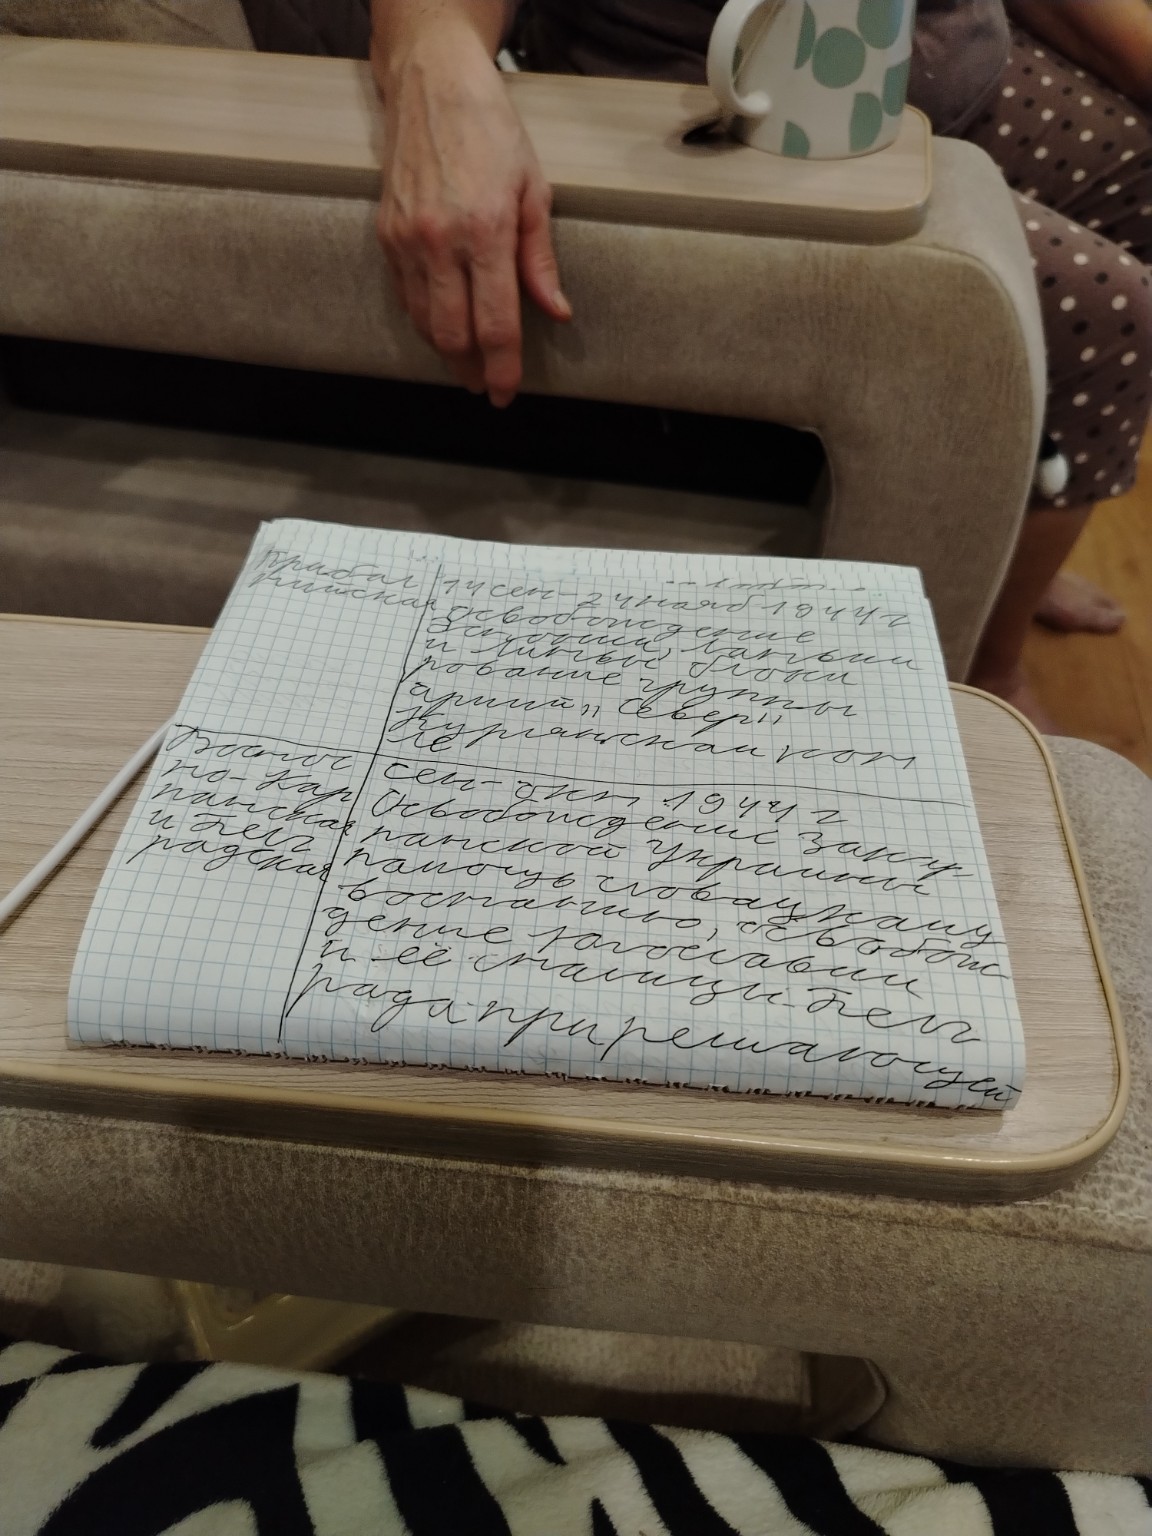 Прибал
тийская
14 сен - 24 нояб 1944 г
Освобождение
Эстонии, Латвии
и Литвы, блоки
рование группы
армий „Север"
Курляндском кот
ле
Восточ
но-Кар
патская
и Белг
радская
сен - окт 1944 г
Освобождение Закар
патской Украины
помощь словацкому
восстанию, освобож
дение Югославии
и её столицы Белг
рада при решающей